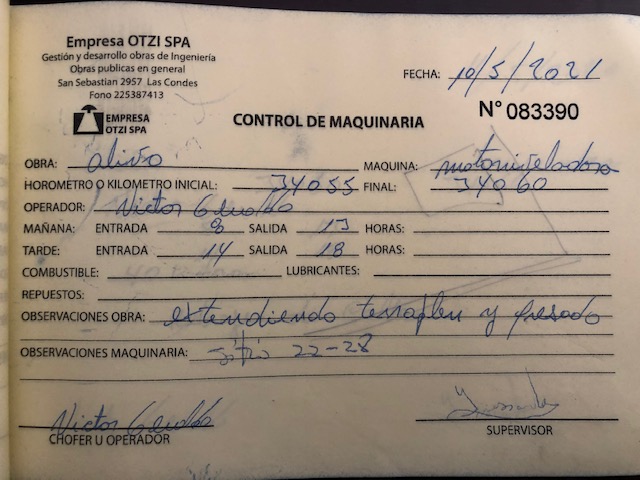 Empresa OTZI SPA
Gestión y desarrollo obras de Ingeniería
Obras publicas en general
San Sebastian 2957 Las Condes
Fono 225387413
FECHA: 10/5/2021
EMPRESA
OTZI SPA
CONTROL DE MAQUINARIA
N° 083390
OBRA: Olivo MAQUINA: motoniveladora
HOROMETRO O KILOMETRO INICIAL: 34055 FINAL: 34060
OPERADOR: Victor
MAÑANA: ENTRADA 8 SALIDA 13 HORAS:
TARDE: ENTRADA 14 SALIDA 18 HORAS:
COMBUSTIBLE: LUBRICANTES:
REPUESTOS:
OBSERVACIONES OBRA: extendiendo terraplen y
OBSERVACIONES MAQUINARIA: 22-28
Victor
CHOFER U OPERADOR
SUPERVISOR